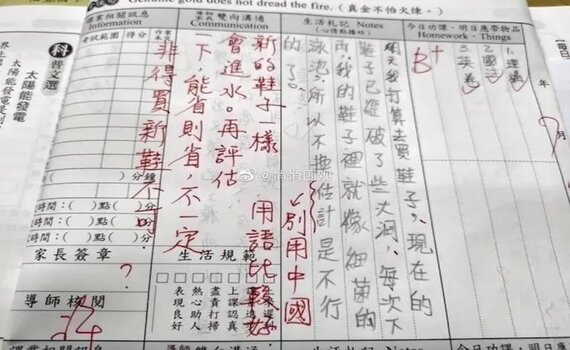 Genuine gold does not dread the fire.（真金不怕火煉。）
今日功課、明日應帶物品
Homework、Things
1. 理講
2. 國習
3. 英卷
年
月
生活札記 Notes
（心情點播站）
B+
明天我打算去買鞋子,現在的
鞋子已經破了些大洞,每次下
雨,我的鞋子裡就像細菌的
泳池,所以不換估計是不行
的了。
別用中國
用語比較好
雙向溝通
Communication
新的鞋子一樣
會進水。再評估
下,能省則省,不一定
非得買新鞋
課業相關訊息
Information
考試範圍
得分
分鐘
時間：（ ）點（ ）分
時間：（ ）點（ ）分
時間：（ ）點（ ）分
家長簽章
?
導師核閱
生活規範
上課認真
盡責打掃
熱心助人
表現良好
科
普文選
太陽能發電